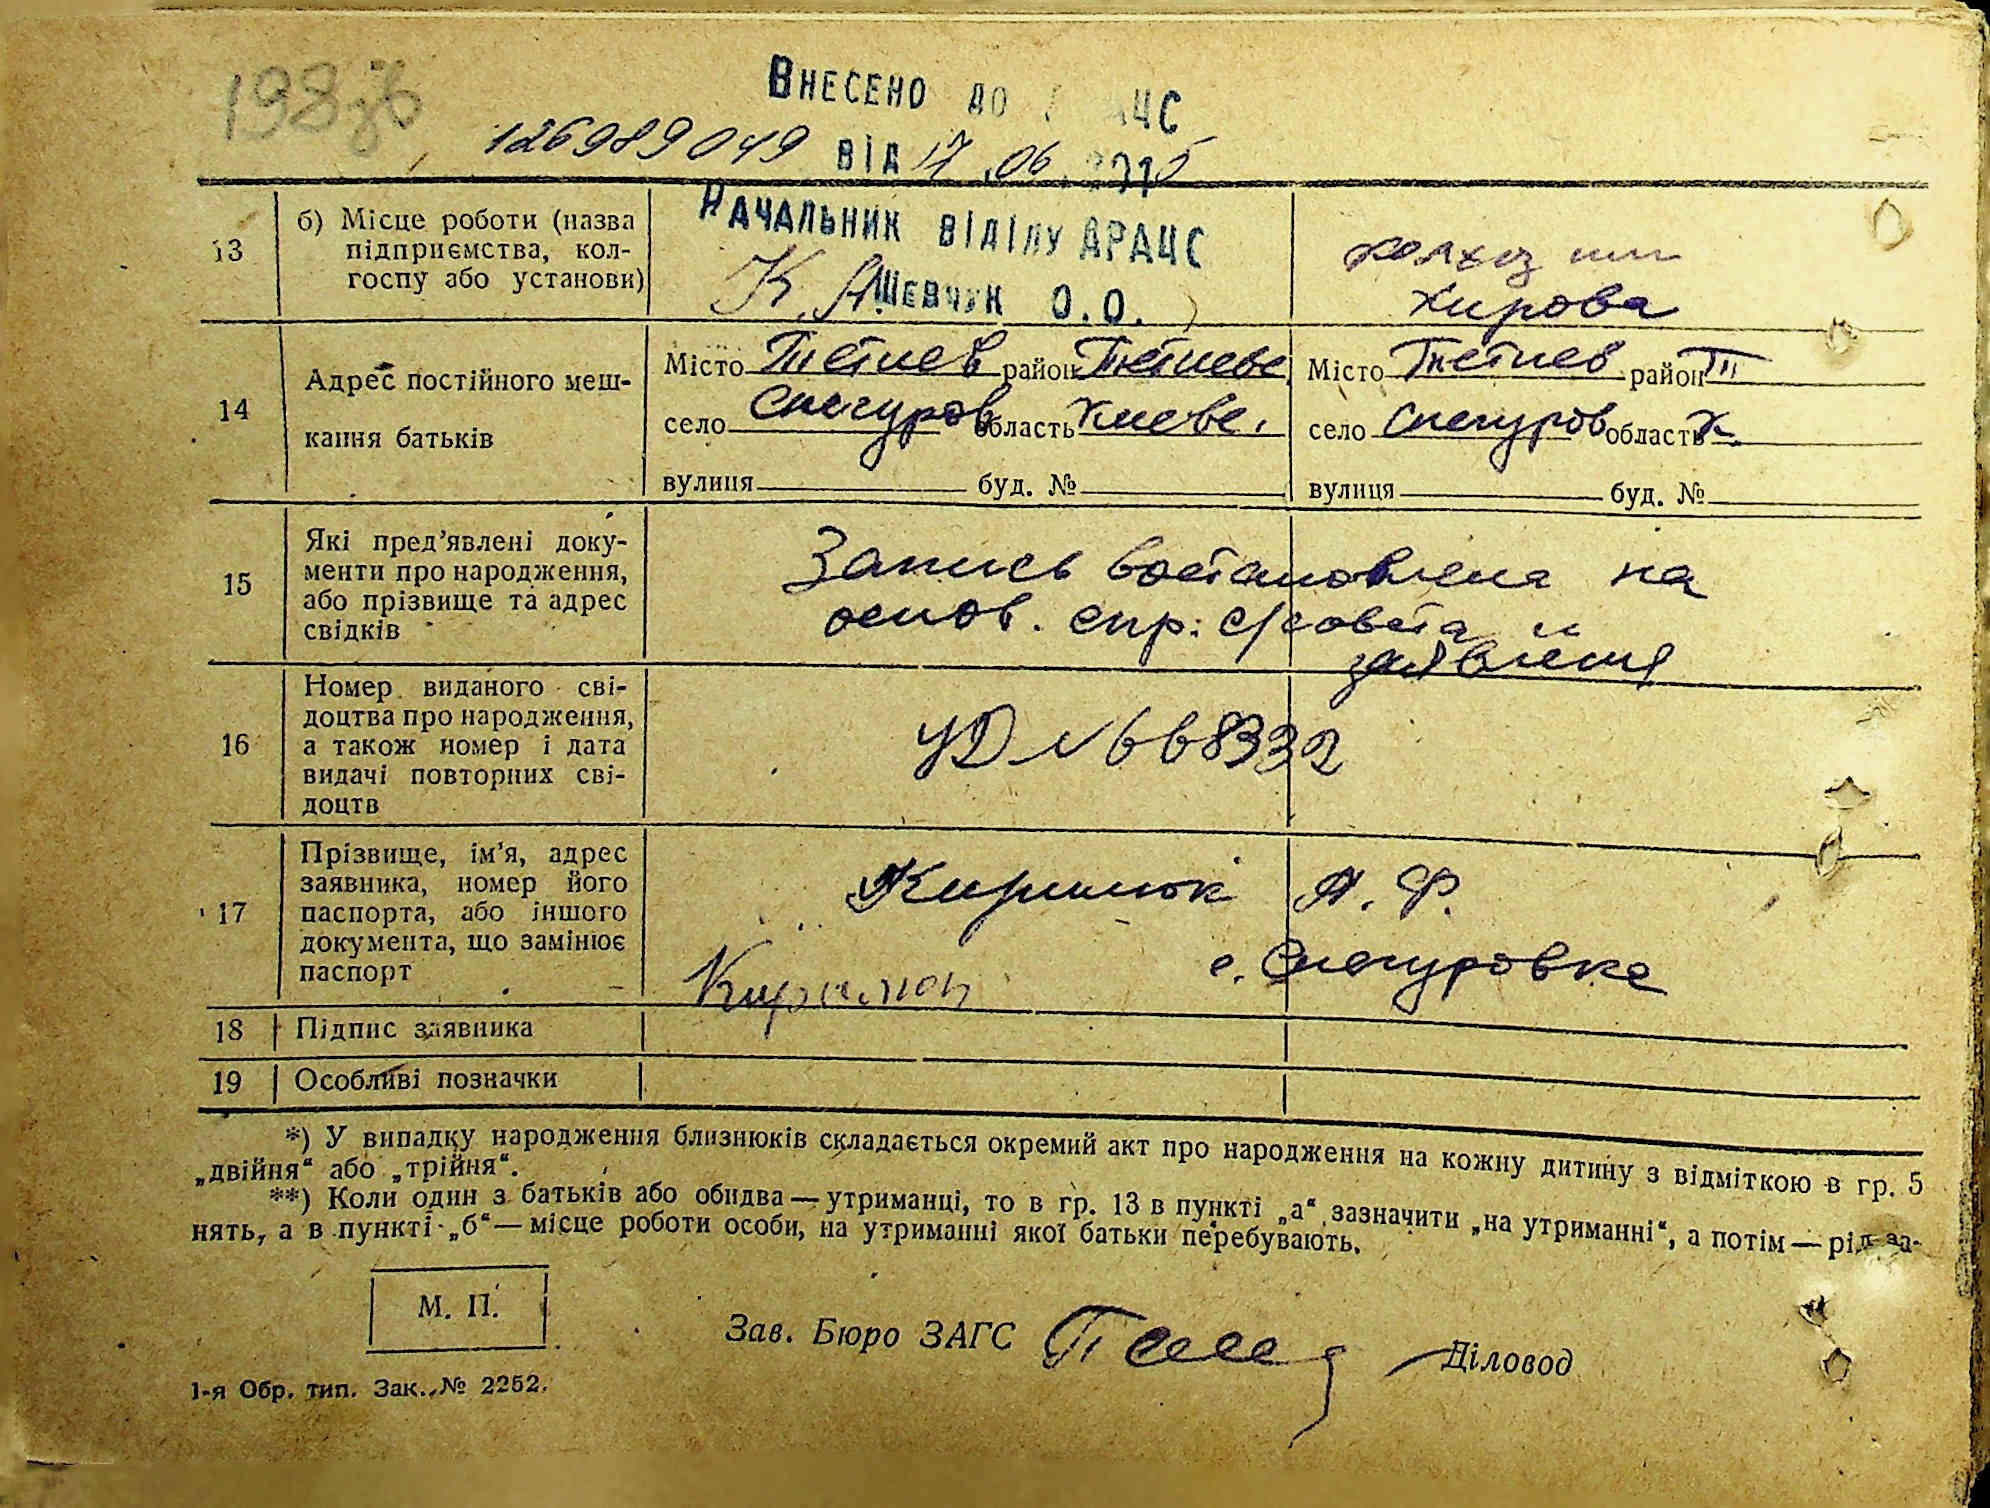 198зв
Внесено до АЦС
126989049 від 17.06.2015
Начальник відділу ДРАЦС
Шевчук О.О.
13
б) Місце роботи (назва
підприємства, кол-
госпу або установи)
колхоз им
Кирова
14
Адрес постійного меш-
кання батьків
Місто Тетиев район Тетиевс
село Снегуров область Киевс.
вулиця буд. №
Місто Тетиев район Т
село Снегуров область К
вулиця буд. №
15
Які пред’явлені доку-
менти про народження,
або прізвище та адрес
свідків
Запись востановлена на
основ. спр. с/совета и
заявления
16
Номер виданого сві-
доцтва про народження,
а також номер і дата
видачі повторних сві-
доцтв
УД №668332
17
Прізвище, ім’я, адрес
заявника, номер його
паспорта, або іншого
документа, що замінює
паспорт
Кирилюк А. Ф.
с. Снегуровка
Кирилюк
18 Підпис заявника
19 Особливі позначки
*) У випадку народження близнюків складається окремий акт про народження на кожну дитину з відміткою в гр. 5
„двійня“ або „трійня“.
**) Коли один з батьків або обидва — утриманці, то в гр. 13 в пункті „а“ зазначити „на утриманні“, а потім — рід за-
нять, а в пункті „б“ — місце роботи особи, на утриманні якої батьки перебувають.
М. П.
Зав. Бюро ЗАГС
Діловод
1-я Обр. тип. Зак. № 2252.